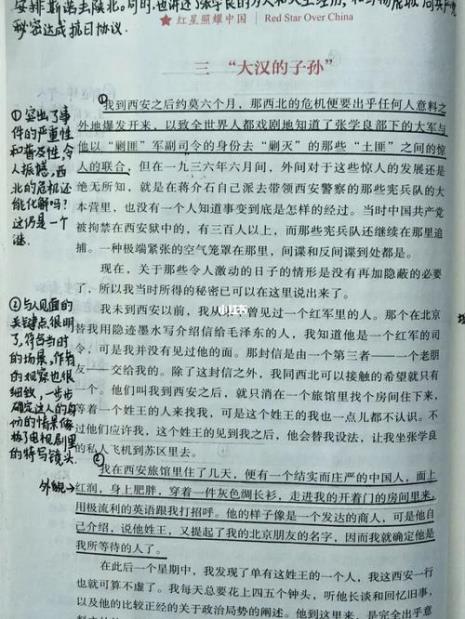 安排斯诺去陕北。同时,也讲述了张学良的为人和人生经历,
秘密达成抗日协议.
★ 红星照耀中国 | Red Star Over China
三 “大汉的子孙”
我到西安之后约莫六个月,那西北的危机便要出乎任何人意料之
外地爆发开来,以致全世界人都戏剧地知道了张学良部下的大军与
他以“剿匪”军副司令的身份去“剿灭”的那些“土匪”之间的惊
人的联合,但在一九三六年六月间,外间对于这些惊人的发展还是
绝无所知,就是在蒋介石自己派去带领西安警察的那些宪兵队的大
本营里,也没有一个人知道事变到底是怎样的经过。当时中国共产党
被拘禁在西安狱中的,有三百人以上,而那些宪兵队还继续在那里追
捕。一种极端紧张的空气笼罩在那里,间谍和反间谍到处都是。
现在,关于那些令人激动的日子的情形是没有再加隐蔽的必要
了,所以我当时所得的秘密已可以在这里说出来了。
我未到西安以前,我从未曾见过一个红军里的人。那个在北京
替我用隐迹墨水写介绍信给毛泽东的人,我知道他是一个红军的司
令,可是我并没有见过他的面。那封信是由一个第三者——一个老朋
友——交给我的。除了这封信之外,我同西北可以接触的希望就只有
一个。他们叫我到西安之后,就只消在一个旅馆里找个房间住下来,
等着一个姓王的人来找我,可是这个姓王的我也一点儿都不认识。不
过他们应许我,这个姓王的见到我之后,他会替我设法,让我坐张学良
的私人飞机到苏区里去。
我在西安旅馆里住了几天,便有一个结实而庄严的中国人,面上
红润,身上肥胖,穿着一件灰色绸长衫,走进我的开着门的房间里来,
用极流利的英语跟我打招呼。他的样子像是一个发达的商人,可是他自
己介绍,说他姓王,又提起了我的北京朋友的名字,因而我就确定他是
我所等待的人了。
在此后一个星期中,我发现了单有这姓王的一个人,我这西安一行
也就可算不虚了。我每天总要花上四五个钟头,听他长谈和回忆旧事,
以及他的比较正经的关于政治局势的阐述。他到这里来,是完全出乎意
①突出了事
件的严重性
和普及性,令
人振撼,西
北的危机还
能化解吗?
这仍是一个
谜.
②与人见面的
关键点很明
了,符合当时
的场景,作者
的观察也很
细致,一步步
确定这人的身
份的情景像
极了电视剧里
的特写镜头
外貌→
小红书